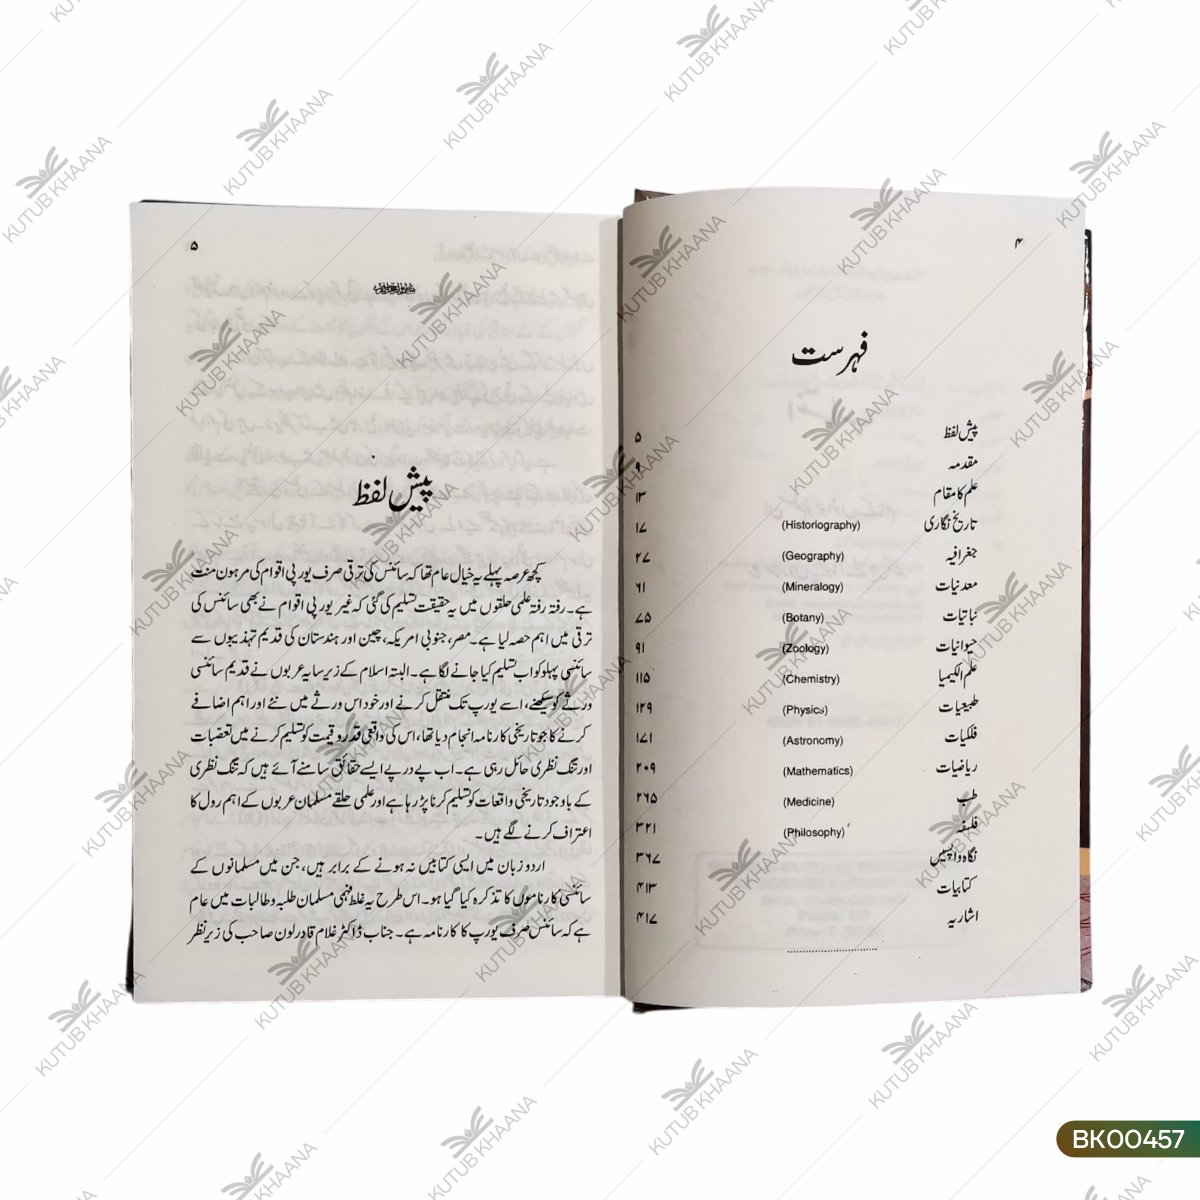 ۴
فہرست
پیش لفظ ۵
مقدمہ ۹
علم کا مقام ۱۳
تاریخ نگاری (Historiography) ۱۷
جغرافیہ (Geography) ۲۷
معدنیات (Mineralogy) ۶۱
نباتیات (Botany) ۷۵
حیوانیات (Zoology) ۹۱
علم الکیمیا (Chemistry) ۱۱۵
طبیعیات (Physics) ۱۲۹
فلکیات (Astronomy) ۱۷۱
ریاضیات (Mathematics) ۲۰۹
طب (Medicine) ۲۶۵
فلسفہ (Philosophy) ۳۲۱
نگاہ واپسیں ۳۶۷
کتابیات ۴۱۳
اشاریہ ۴۱۷
۵
پیش لفظ
کچھ عرصہ پہلے یہ خیال عام تھا کہ سائنس کی ترقی صرف یورپی اقوام کی مرہون منت
ہے۔ رفتہ رفتہ علمی حلقوں میں یہ حقیقت تسلیم کی گئی کہ غیر یورپی اقوام نے بھی سائنس کی
ترقی میں اہم حصہ لیا ہے۔ مصر، جنوبی امریکہ، چین اور ہندستان کی قدیم تہذیبوں سے
سائنسی پہلو کو اب تسلیم کیا جانے لگا ہے۔ البتہ اسلام کے زیر سایہ عربوں نے قدیم سائنسی
ورثے کو سیکھنے، اسے یورپ تک منتقل کرنے اور خود اس ورثے میں نئے اور اہم اضافے
کرنے کا جو تاریخی کارنامہ انجام دیا تھا، اس کی واقعی قدر و قیمت کو تسلیم کرنے میں تعصبات
اور تنگ نظری حائل رہی ہے۔ اب پے در پے ایسے حقائق سامنے آئے ہیں کہ تنگ نظری
کے باوجود تاریخی واقعات کو تسلیم کرنا پڑ رہا ہے اور علمی حلقے مسلمان عربوں کے اہم رول کا
اعتراف کرنے لگے ہیں۔
اردو زبان میں ایسی کتابیں نہ ہونے کے برابر ہیں، جن میں مسلمانوں کے
سائنسی کارناموں کا تذکرہ کیا گیا ہو۔ اس طرح یہ غلط فہمی مسلمان طلبہ و طالبات میں عام
ہے کہ سائنس صرف یورپ کا کارنامہ ہے۔ جناب ڈاکٹر غلام قادر لون صاحب کی زیر نظر
KUTUB KHAANA
BK00457